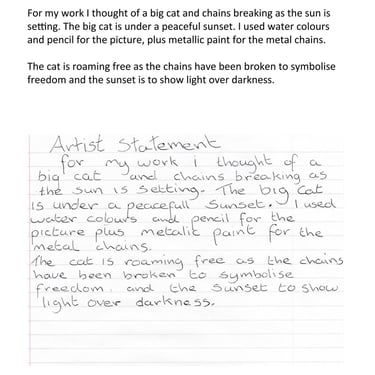 For my work I thought of a big cat and chains breaking as the sun is
setting. The big cat is under a peaceful sunset. I used water colours
and pencil for the picture, plus metallic paint for the metal chains.
The cat is roaming free as the chains have been broken to symbolise
freedom and the sunset is to show light over darkness.
Artist Statement
for my work i thought of a
big cat and chains breaking as
the sun is setting. The big Cat
is under a peacefull sunset. I used
water colours and pencil for the
picture plus metalic paint for the
metal chains.
The cat is roaming free as the chains
have been broken to symbolise
freedom. and the sunset to show
light over darkness.